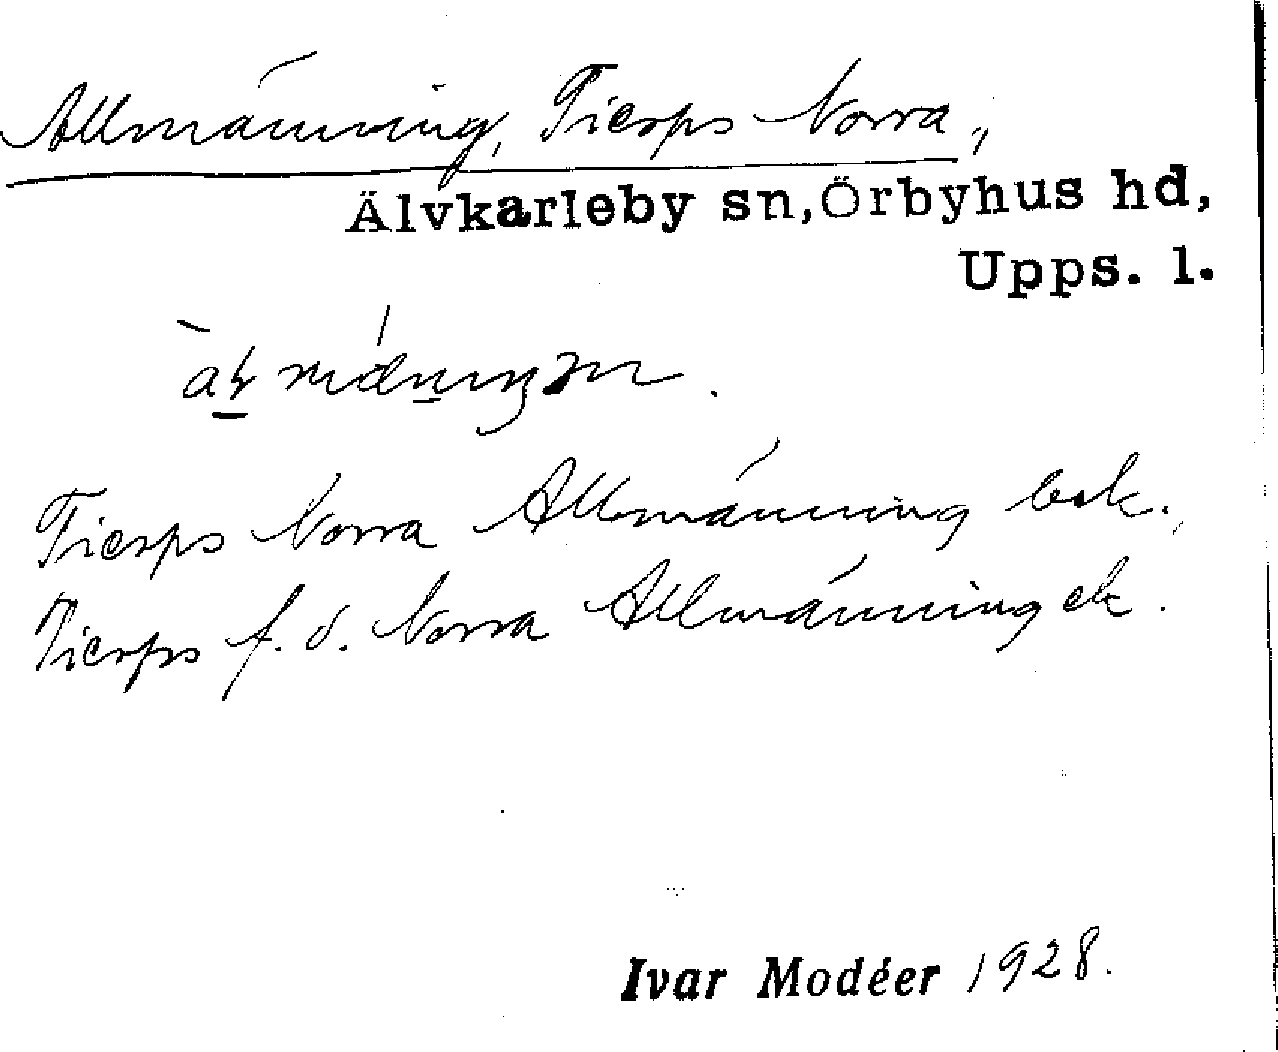 Allmänning, Tierps Norra,
Älvkarleby sn, Örbyhus hd,
Upps. l.
Tierps Norra Allmänning bok.,
Tierps f. d. Norra Allmänning ek.
Ivar Modéer 1928.